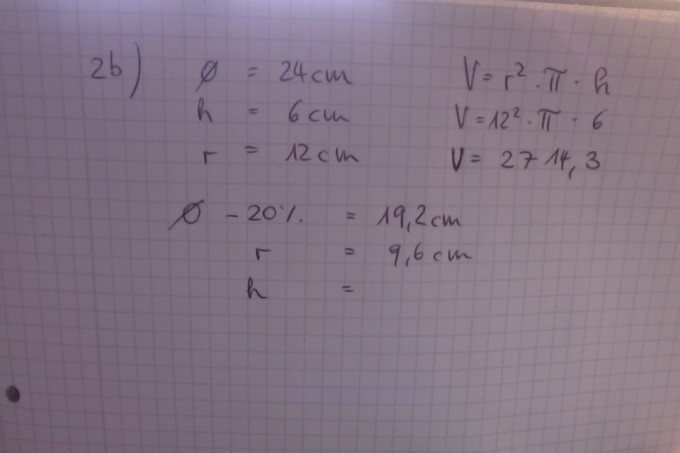 2b) ∅ = 24cm V = r² · π · h
h = 6cm V = 12² · π · 6
r = 12cm V = 2714,3
∅ - 20% = 19,2cm
r = 9,6cm
h =